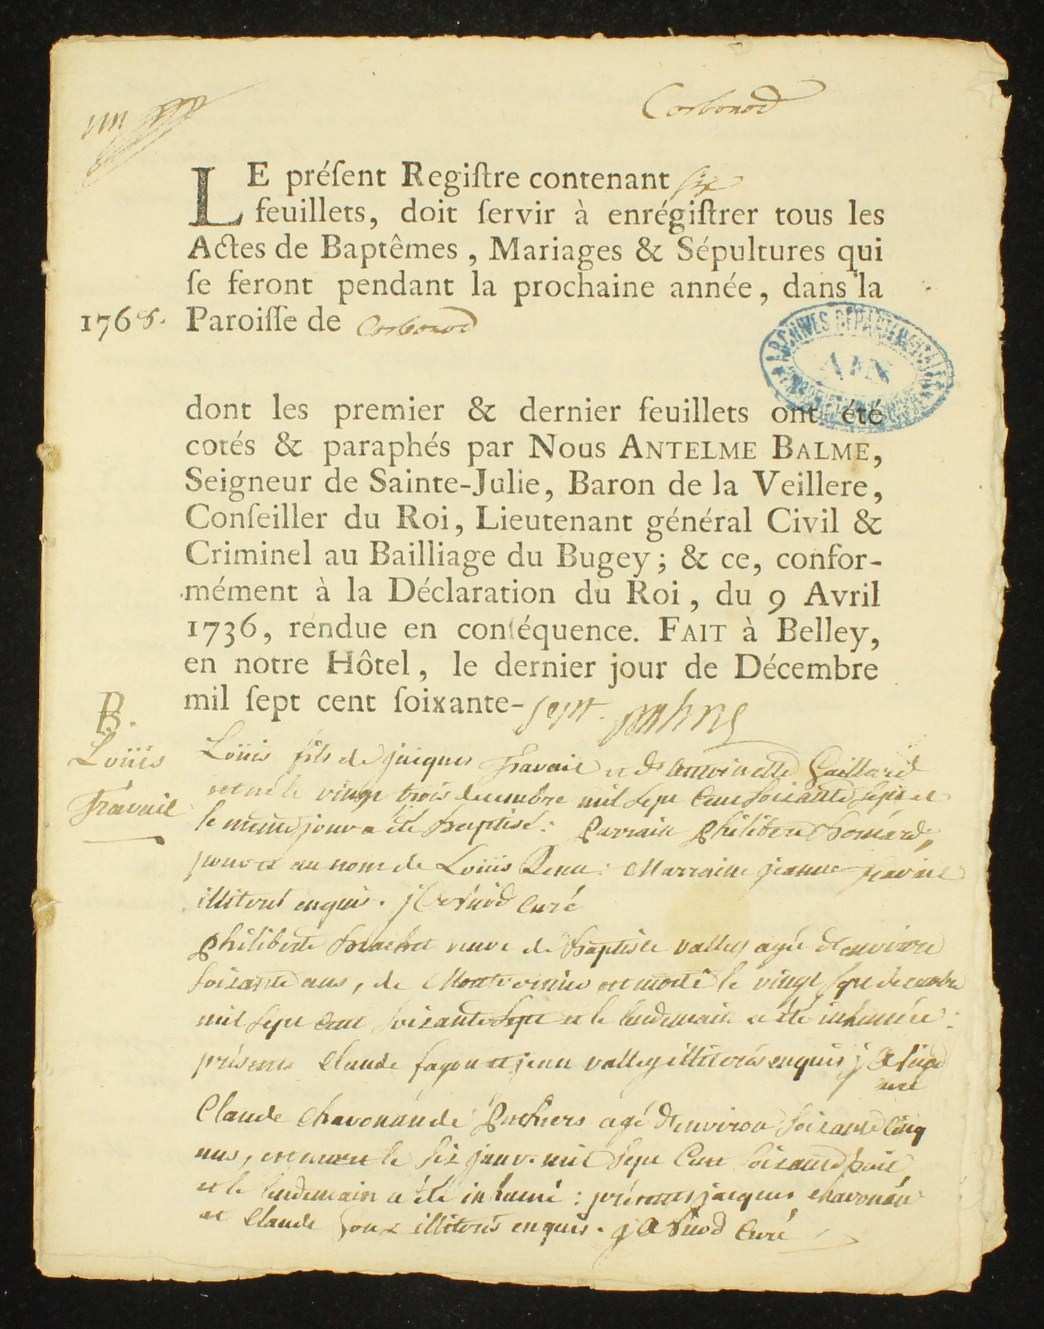 Corbonod
LE préſent Regiſtre contenant six
feuillets, doit ſervir à enrégiſtrer tous les
Actes de Baptêmes, Mariages & Sépultures qui
ſe feront pendant la prochaine année, dans la
1768. Paroiſſe de Corbonod
ARCHIVES DÉPARTEMENTALES
AIN
dont les premier & dernier feuillets ont été
cotés & paraphés par Nous ANTELME BALME,
Seigneur de Sainte-Julie, Baron de la Veillere,
Conſeiller du Roi, Lieutenant général Civil &
Criminel au Bailliage du Bugey; & ce, confor-
mément à la Déclaration du Roi, du 9 Avril
1736, rendue en conſéquence. FAIT à Belley,
en notre Hôtel, le dernier jour de Décembre
mil ſept cent ſoixante-sept.
B.
Loüis
Travail
Loüis fils de jacques Travail et de Antoinette Gaillard
est né le vingt trois decembre mil sept cent soixante sept et
le meme jour a été baptisé: Parrain Philibert
pour et au nom de Loüis : Marraine jeanne travail
illiterés enquis. curé
Philiberte veuve de Baptiste vallet agée d'environ
soixante ans, de est morte le vingt sept decembre
mil sept cent soixante sept et le lendemain a été inhumée:
présents Claude et jean vallet illiterés enquis
curé
Claude Chavonan de agé d'environ soixante cinq
ans, est mort le six janv. mil sept cent soixante huit
et le lendemain a été inhumé: présents jacques chavonan
et Claude illiterés enquis. curé